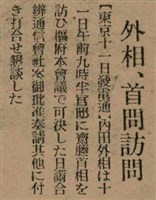 外相、首相訪問
【東京十一日發電通】內田外相は十
一日午前九時半官邸に齋藤首相を
訪ひ樞府本會議で可決した日滿合
辦通信會社案御批准奏請其他に付
き打合せ懇談した